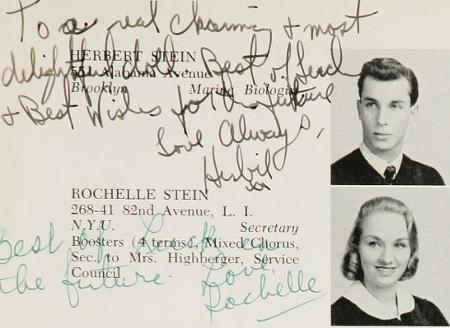 To a real charming & most
HERBERT STEIN
delightful doll. Best of Luck
Alabama Avenue
Brooklyn Marine Biologist
& Best Wishes for the future
Love Always,
Herbie
ROCHELLE STEIN
268-41 82nd Avenue, L. I.
N.Y.U. Secretary
Boosters (4 terms), Mixed Chorus,
Sec. to Mrs. Highberger, Service
Council
Best of Luck in
the future.
Love,
Rochelle